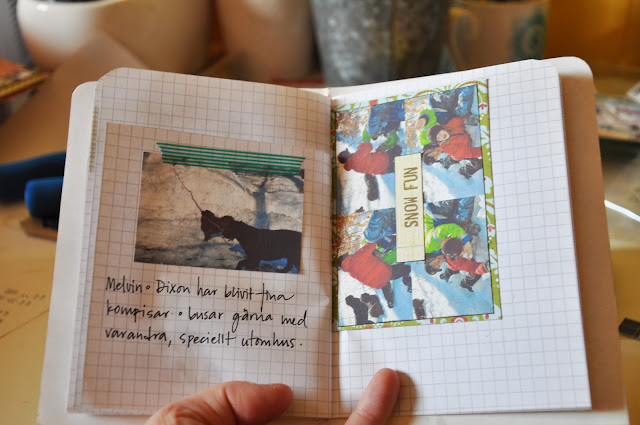 Melvin o Dixon har blivit fina
kompisar o busar gärna med
varandra, speciellt utomhus.
SNOW FUN